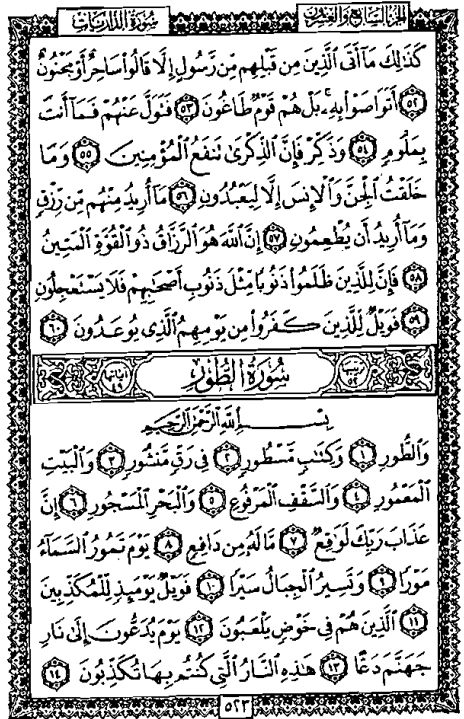 الجزء السابع والعشرون سورة الذاريات
كَذَٰلِكَ مَآ أَتَى ٱلَّذِينَ مِن قَبْلِهِم مِّن رَّسُولٍ إِلَّا قَالُوا۟ سَاحِرٌ أَوْ مَجْنُونٌ
٥٢ أَتَوَاصَوْا۟ بِهِۦ بَلْ هُمْ قَوْمٌ طَاغُونَ ٥٣ فَتَوَلَّ عَنْهُمْ فَمَآ أَنتَ
بِمَلُومٍ ٥٤ وَذَكِّرْ فَإِنَّ ٱلذِّكْرَىٰ تَنفَعُ ٱلْمُؤْمِنِينَ ٥٥ وَمَا
خَلَقْتُ ٱلْجِنَّ وَٱلْإِنسَ إِلَّا لِيَعْبُدُونِ ٥٦ مَآ أُرِيدُ مِنْهُم مِّن رِّزْقٍ
وَمَآ أُرِيدُ أَن يُطْعِمُونِ ٥٧ إِنَّ ٱللَّهَ هُوَ ٱلرَّزَّاقُ ذُو ٱلْقُوَّةِ ٱلْمَتِينُ
٥٨ فَإِنَّ لِلَّذِينَ ظَلَمُوا۟ ذَنُوبًا مِّثْلَ ذَنُوبِ أَصْحَٰبِهِمْ فَلَا يَسْتَعْجِلُونِ
٥٩ فَوَيْلٌ لِّلَّذِينَ كَفَرُوا۟ مِن يَوْمِهِمُ ٱلَّذِى يُوعَدُونَ ٦٠
ترتيبها ٥٢ سُورَةُ الطُّورِ آياتها ٤٩
بِسْمِ ٱللَّهِ ٱلرَّحْمَٰنِ ٱلرَّحِيمِ
وَٱلطُّورِ ١ وَكِتَٰبٍ مَّسْطُورٍ ٢ فِى رَقٍّ مَّنشُورٍ ٣ وَٱلْبَيْتِ
ٱلْمَعْمُورِ ٤ وَٱلسَّقْفِ ٱلْمَرْفُوعِ ٥ وَٱلْبَحْرِ ٱلْمَسْجُورِ ٦ إِنَّ
عَذَابَ رَبِّكَ لَوَٰقِعٌ ٧ مَّا لَهُۥ مِن دَافِعٍ ٨ يَوْمَ تَمُورُ ٱلسَّمَآءُ
مَوْرًا ٩ وَتَسِيرُ ٱلْجِبَالُ سَيْرًا ١٠ فَوَيْلٌ يَوْمَئِذٍ لِّلْمُكَذِّبِينَ
١١ ٱلَّذِينَ هُمْ فِى خَوْضٍ يَلْعَبُونَ ١٢ يَوْمَ يُدَعُّونَ إِلَىٰ نَارِ
جَهَنَّمَ دَعًّا ١٣ هَٰذِهِ ٱلنَّارُ ٱلَّتِى كُنتُم بِهَا تُكَذِّبُونَ ١٤
٥٢٣